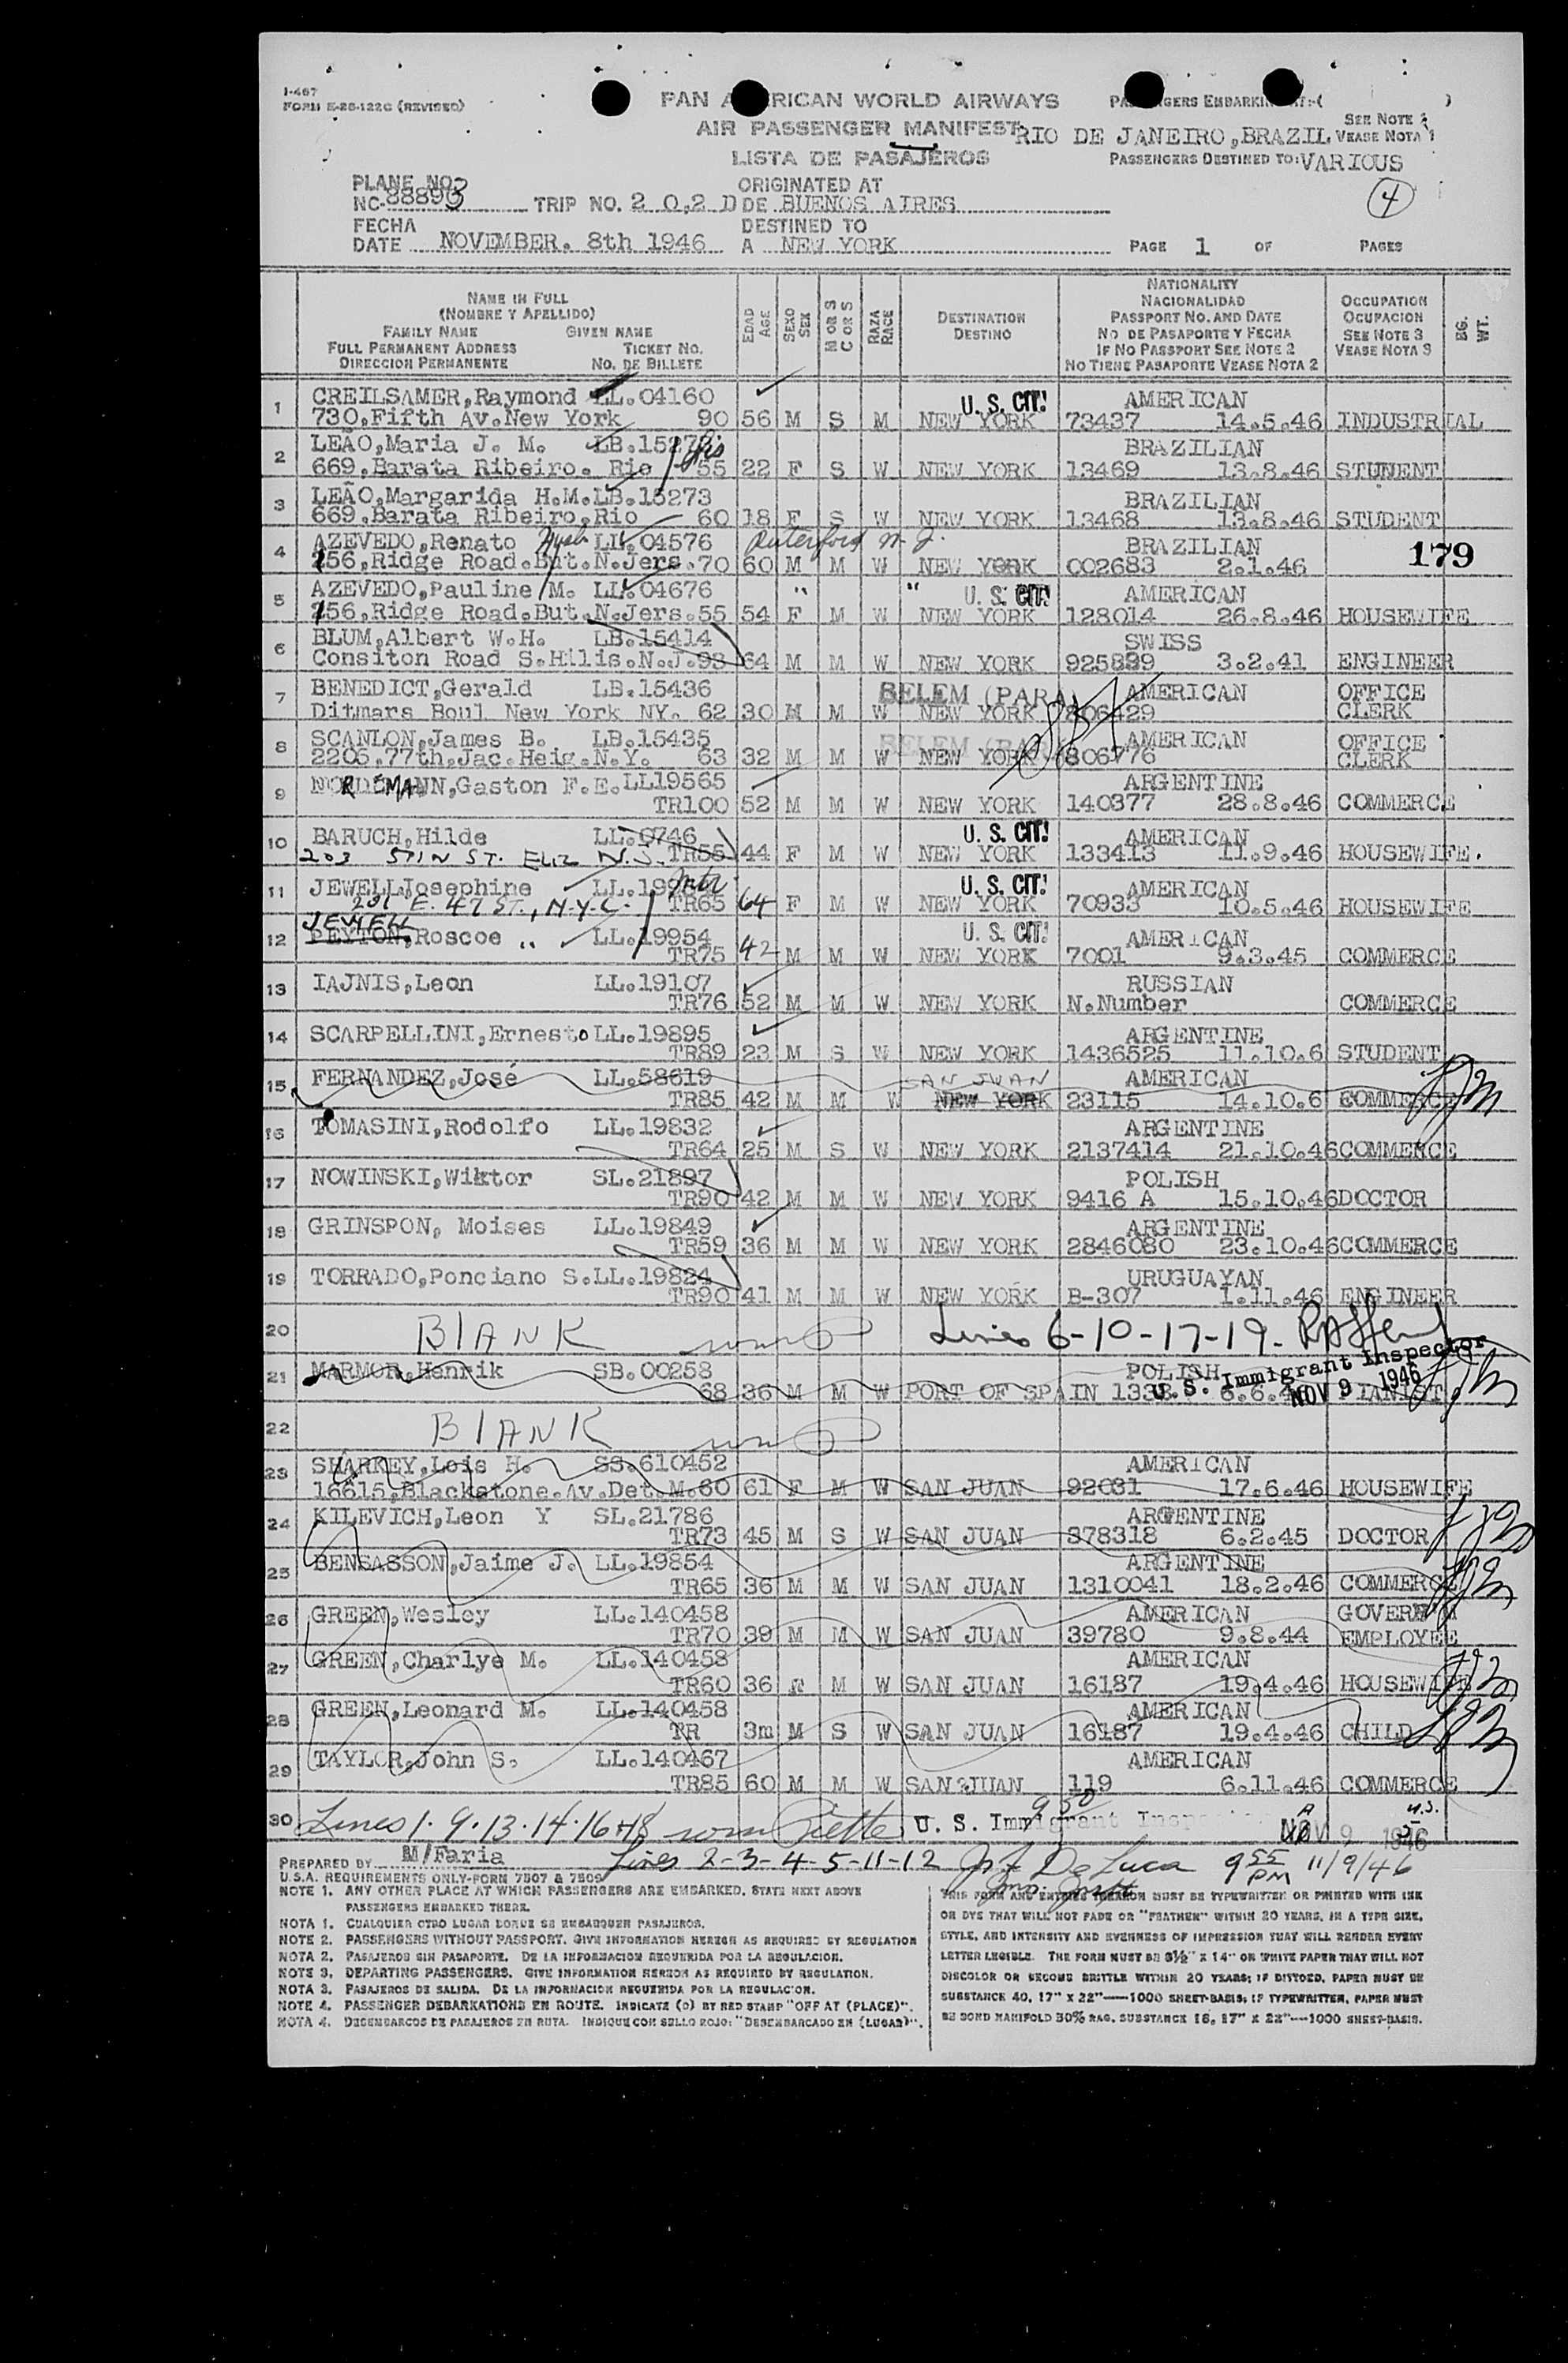 I-467
FORM E-28-122C (REVISED)
PAN AMERICAN WORLD AIRWAYS
AIR PASSENGER MANIFEST
LISTA DE PASAJEROS
PASSENGERS EMBARKING AT:-( )
SEE NOTE 1
RIO DE JANEIRO,BRAZIL VEASE NOTA 1
PASSENGERS DESTINED TO: VARIOUS
4
PLANE NO. ORIGINATED AT
NC-88893 TRIP NO. 2 0,2 D DE BUENOS AIRES
FECHA DESTINED TO
DATE NOVEMBER. 8th 1946 A NEW YORK PAGE 1 OF PAGES
NAME IN FULL
(NOMBRE Y APELLIDO)
FAMILY NAME GIVEN NAME
FULL PERMANENT ADDRESS TICKET NO.
DIRECCION PERMANENTE NO. DE BILLETE
EDAD AGE
SEXO SEX
M OR S C OR S
RAZA RACE
DESTINATION
DESTINO
NATIONALITY
NACIONALIDAD
PASSPORT NO. AND DATE
NO DE PASAPORTE Y FECHA
IF NO PASSPORT SEE NOTE 2
NO TIENE PASAPORTE VEASE NOTA 2
OCCUPATION
OCUPACION
SEE NOTE 3
VEASE NOTA 3
BG. WT.
1 CREILSAMER,Raymond LL.04160 U. S. CIT! AMERICAN
730,Fifth Av.New York 90 56 M S M NEW YORK 73437 14.5.46 INDUSTRIAL
2 LEÃO,Maria J. M. LB.15272 BRAZILIAN
669,Barata Ribeiro. Rio 55 22 F S W NEW YORK 13469 13.8.46 STUDENT
3 LEÃO,Margarida H.M.LB.15273 BRAZILIAN
669,Barata Ribeiro,Rio 60 18 F S W NEW YORK 13468 13.8.46 STUDENT
4 AZEVEDO,Renato LL.04576 Ruterford N. J. BRAZILIAN 179
156,Ridge Road.But.N.Jers.70 60 M M W NEW YORK 002683 2.1.46
5 AZEVEDO,Pauline M. LL.04676 " " U. S. CIT! AMERICAN
156,Ridge Road.But.N.Jers.55 54 F M W NEW YORK 128014 26.8.46 HOUSEWIFE
6 BLUM,Albert W.H. LB.15414 SWISS
Consiton Road S.Hills.N.J.93 64 M M W NEW YORK 925899 3.2.41 ENGINEER
7 BENEDICT,Gerald LB.15436 BELEM (PARA) AMERICAN OFFICE
Ditmars Boul New York NY. 62 30 M M W NEW YORK 806429 CLERK
8 SCANLON,James B. LB.15435 BELEM (PARA) AMERICAN OFFICE
2205.77th,Jac.Heig.N.Y. 63 32 M M W NEW YORK 806776 CLERK
9 NORDEMANN,Gaston F.E.LL19565 ARGENTINE
TR100 52 M M W NEW YORK 140377 28.8.46 COMMERCE
10 BARUCH,Hilde LL.0746 U. S. CIT! AMERICAN
203 5TIN ST. ELIZ N.J. TR55 44 F M W NEW YORK 133413 11.9.46 HOUSEWIFE.
11 JEWELL,Josephine U. S. CIT! AMERICAN
E. 47 ST., N.Y.C. TR65 64 F M W NEW YORK 70933 10.5.46 HOUSEWIFE
JEWELL
12 PEYTON,Roscoe " LL.19954 U. S. CIT! AMERICAN
TR75 42 M M W NEW YORK 7001 9.3.45 COMMERCE
13 IAJNIS,Leon LL.19107 RUSSIAN
TR76 52 M M W NEW YORK N.Number COMMERCE
14 SCARPELLINI,Ernesto LL.19895 ARGENTINE
TR89 23 M S W NEW YORK 1436525 11.10.6 STUDENT
15 FERNANDEZ,José LL.58619 SAN JUAN AMERICAN
TR85 42 M M W NEW YORK 23115 14.10.6 COMMERCE
16 TOMASINI,Rodolfo LL.19832 ARGENTINE
TR64 25 M S W NEW YORK 2137414 21.10.46 COMMERCE
17 NOWINSKI,Wiktor SL.21897 POLISH
TR90 42 M M W NEW YORK 9416 A 15.10.46 DOCTOR
18 GRINSPON, Moises LL.19849 ARGENTINE
TR59 36 M M W NEW YORK 2846080 23.10.46 COMMERCE
19 TORRADO,Ponciano S.LL.19824 URUGUAYAN
TR90 41 M M W NEW YORK B-307 1.11.46 ENGINEER
20 BLANK Lines 6-10-17-19-
21 MARMOR,Henrik SB.00258 POLISH U. S. Immigrant Inspector
68 36 M M W PORT OF SPAIN 1333 6.6.4 PIANIST NOV 9 1946
22 BLANK
23 SHARKEY,Lois H. SS.610452 AMERICAN
16615,Blackstone.Av.Det.M.60 61 F M W SAN JUAN 92031 17.6.46 HOUSEWIFE
24 KILEVICH,Leon Y SL.21786 ARGENTINE
TR73 45 M S W SAN JUAN 378318 6.2.45 DOCTOR
25 BENSASSON,Jaime J. LL.19854 ARGENTINE
TR65 36 M M W SAN JUAN 1310041 18.2.46 COMMERCE
26 GREEN,Wesley LL.140458 AMERICAN GOVERNM
TR70 39 M M W SAN JUAN 39780 9.8.44 EMPLOYEE
27 GREEN,Charlye M. LL.140458 AMERICAN
TR60 36 F M W SAN JUAN 16187 19.4.46 HOUSEWIFE
28 GREEN,Leonard M. LL.140458 AMERICAN
TR 3m M S W SAN JUAN 16187 19.4.46 CHILD
29 TAYLOR,John S. LL.140467 AMERICAN
TR85 60 M M W SAN JUAN 119 6.11.46 COMMERCE
30 Lines 1.9.13.14.16+18 Piette U. S. Immigrant Inspector 9 50 NOV 9 1946
PREPARED BY M/Faria Lines 2-3-4-5-11-12 De Luca 9 55 PM 11/9/46
U.S.A. REQUIREMENTS ONLY-FORM 7507 & 7509
NOTE 1. ANY OTHER PLACE AT WHICH PASSENGERS ARE EMBARKED. STATE NEXT ABOVE
PASSENGERS EMBARKED THERE.
NOTA 1. CUALQUIER OTRO LUGAR DONDE SE EMBARQUEN PASAJEROS.
NOTE 2. PASSENGERS WITHOUT PASSPORT. GIVE INFORMATION HEREON AS REQUIRED BY REGULATION
NOTA 2. PASAJEROS SIN PASAPORTE. DE LA INFORMACION REQUERIDA POR LA REGULACION.
NOTE 3. DEPARTING PASSENGERS. GIVE INFORMATION HEREON AS REQUIRED BY REGULATION.
NOTA 3. PASAJEROS DE SALIDA. DE LA INFORMACION REQUERIDA POR LA REGULACION.
NOTE 4. PASSENGER DEBARKATIONS EN ROUTE. INDICATE (O) BY RED STAMP "OFF AT (PLACE)".
NOTA 4. DESEMBARCOS DE PASAJEROS EN RUTA. INDIQUE CON SELLO ROJO: "DESEMBARCADO EN (LUGAR)".
THIS FORM AND ENTRIES THEREON MUST BE TYPEWRITTEN OR PRINTED WITH INK
OR DYE THAT WILL NOT FADE OR "FEATHER" WITHIN 20 YEARS, IN A TYPE SIZE,
STYLE, AND INTENSITY AND EVENNESS OF IMPRESSION THAT WILL RENDER EVERY
LETTER LEGIBLE. THE FORM MUST BE 8½" X 14" ON WHITE PAPER THAT WILL NOT
DISCOLOR OR BECOME BRITTLE WITHIN 20 YEARS; IF DITTOED, PAPER MUST BE
SUBSTANCE 40, 17" X 22"—1000 SHEET-BASIS; IF TYPEWRITTEN, PAPER MUST
BE BOND MANIFOLD 30% RAG, SUBSTANCE 16, 17" X 22"—1000 SHEET-BASIS.